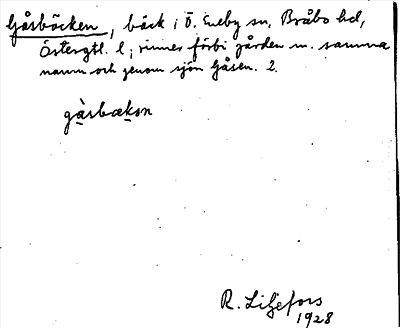 Gåsbäcken, bäck i Ö. Eneby sn, Bråbo hd,
Östergtl. l; rinner förbi gården m. samma
namn och genom sjön Gåsen. 2.
gàsbækən
R. Liljefors
1928